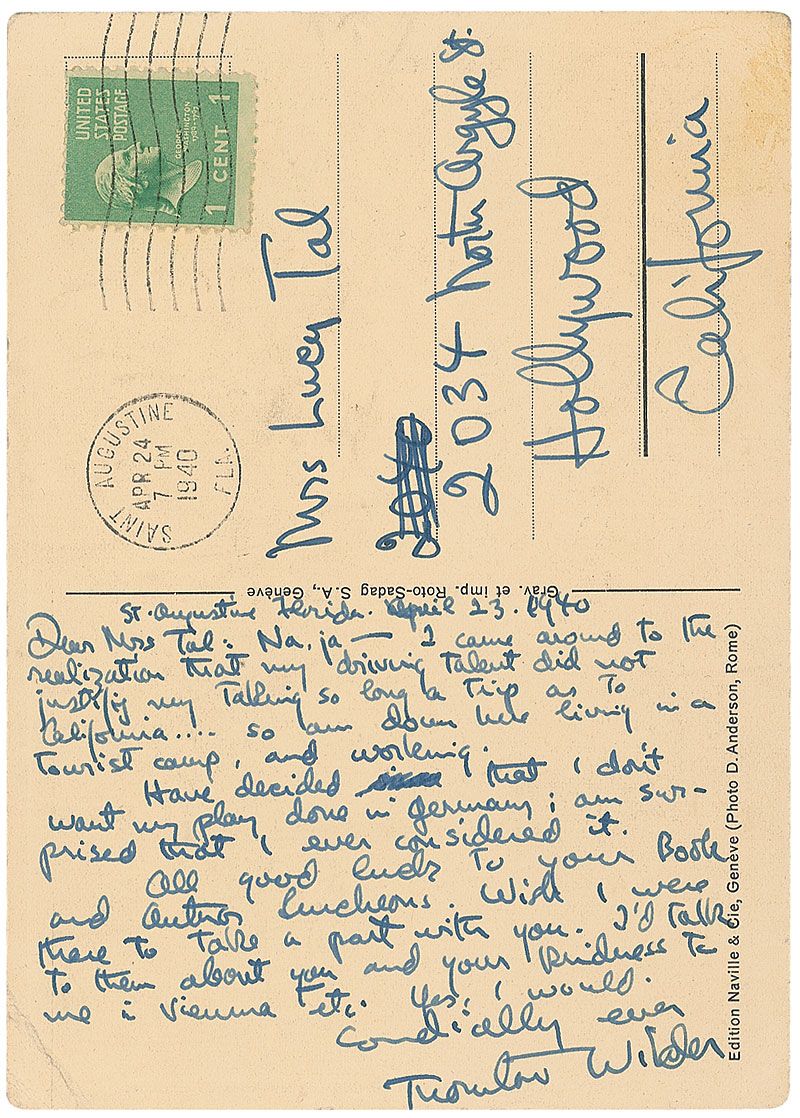 UNITED
STATES
POSTAGE
GEORGE
WASHINGTON
1789-1797
1 CENT 1
SAINT AUGUSTINE
APR 24
7 PM
1940
FLA.
Mrs Lucy Tal
2034 North Argyle St.
Hollywood
California
Grav. et imp. Roto-Sadag S.A., Genève
St. Augustine Florida. April 23. 1940
Dear Mrs Tal: Na, ja — I came around to the
realization that my driving talent did not
justify my taking so long a trip as to
California.... so am down here living in a
tourist camp, and working.
Have decided that I don't
want my play done in Germany; am sur-
prised that I ever considered it.
All good luck to your Book
and Author luncheons. Wish I were
there to take a part with you. I'd talk
to them about you and your kindness to
me i Vienna etc. Yes, I would.
Cordially ever
Thornton Wilder
Edition Naville & Cie, Genève (Photo D. Anderson, Rome)